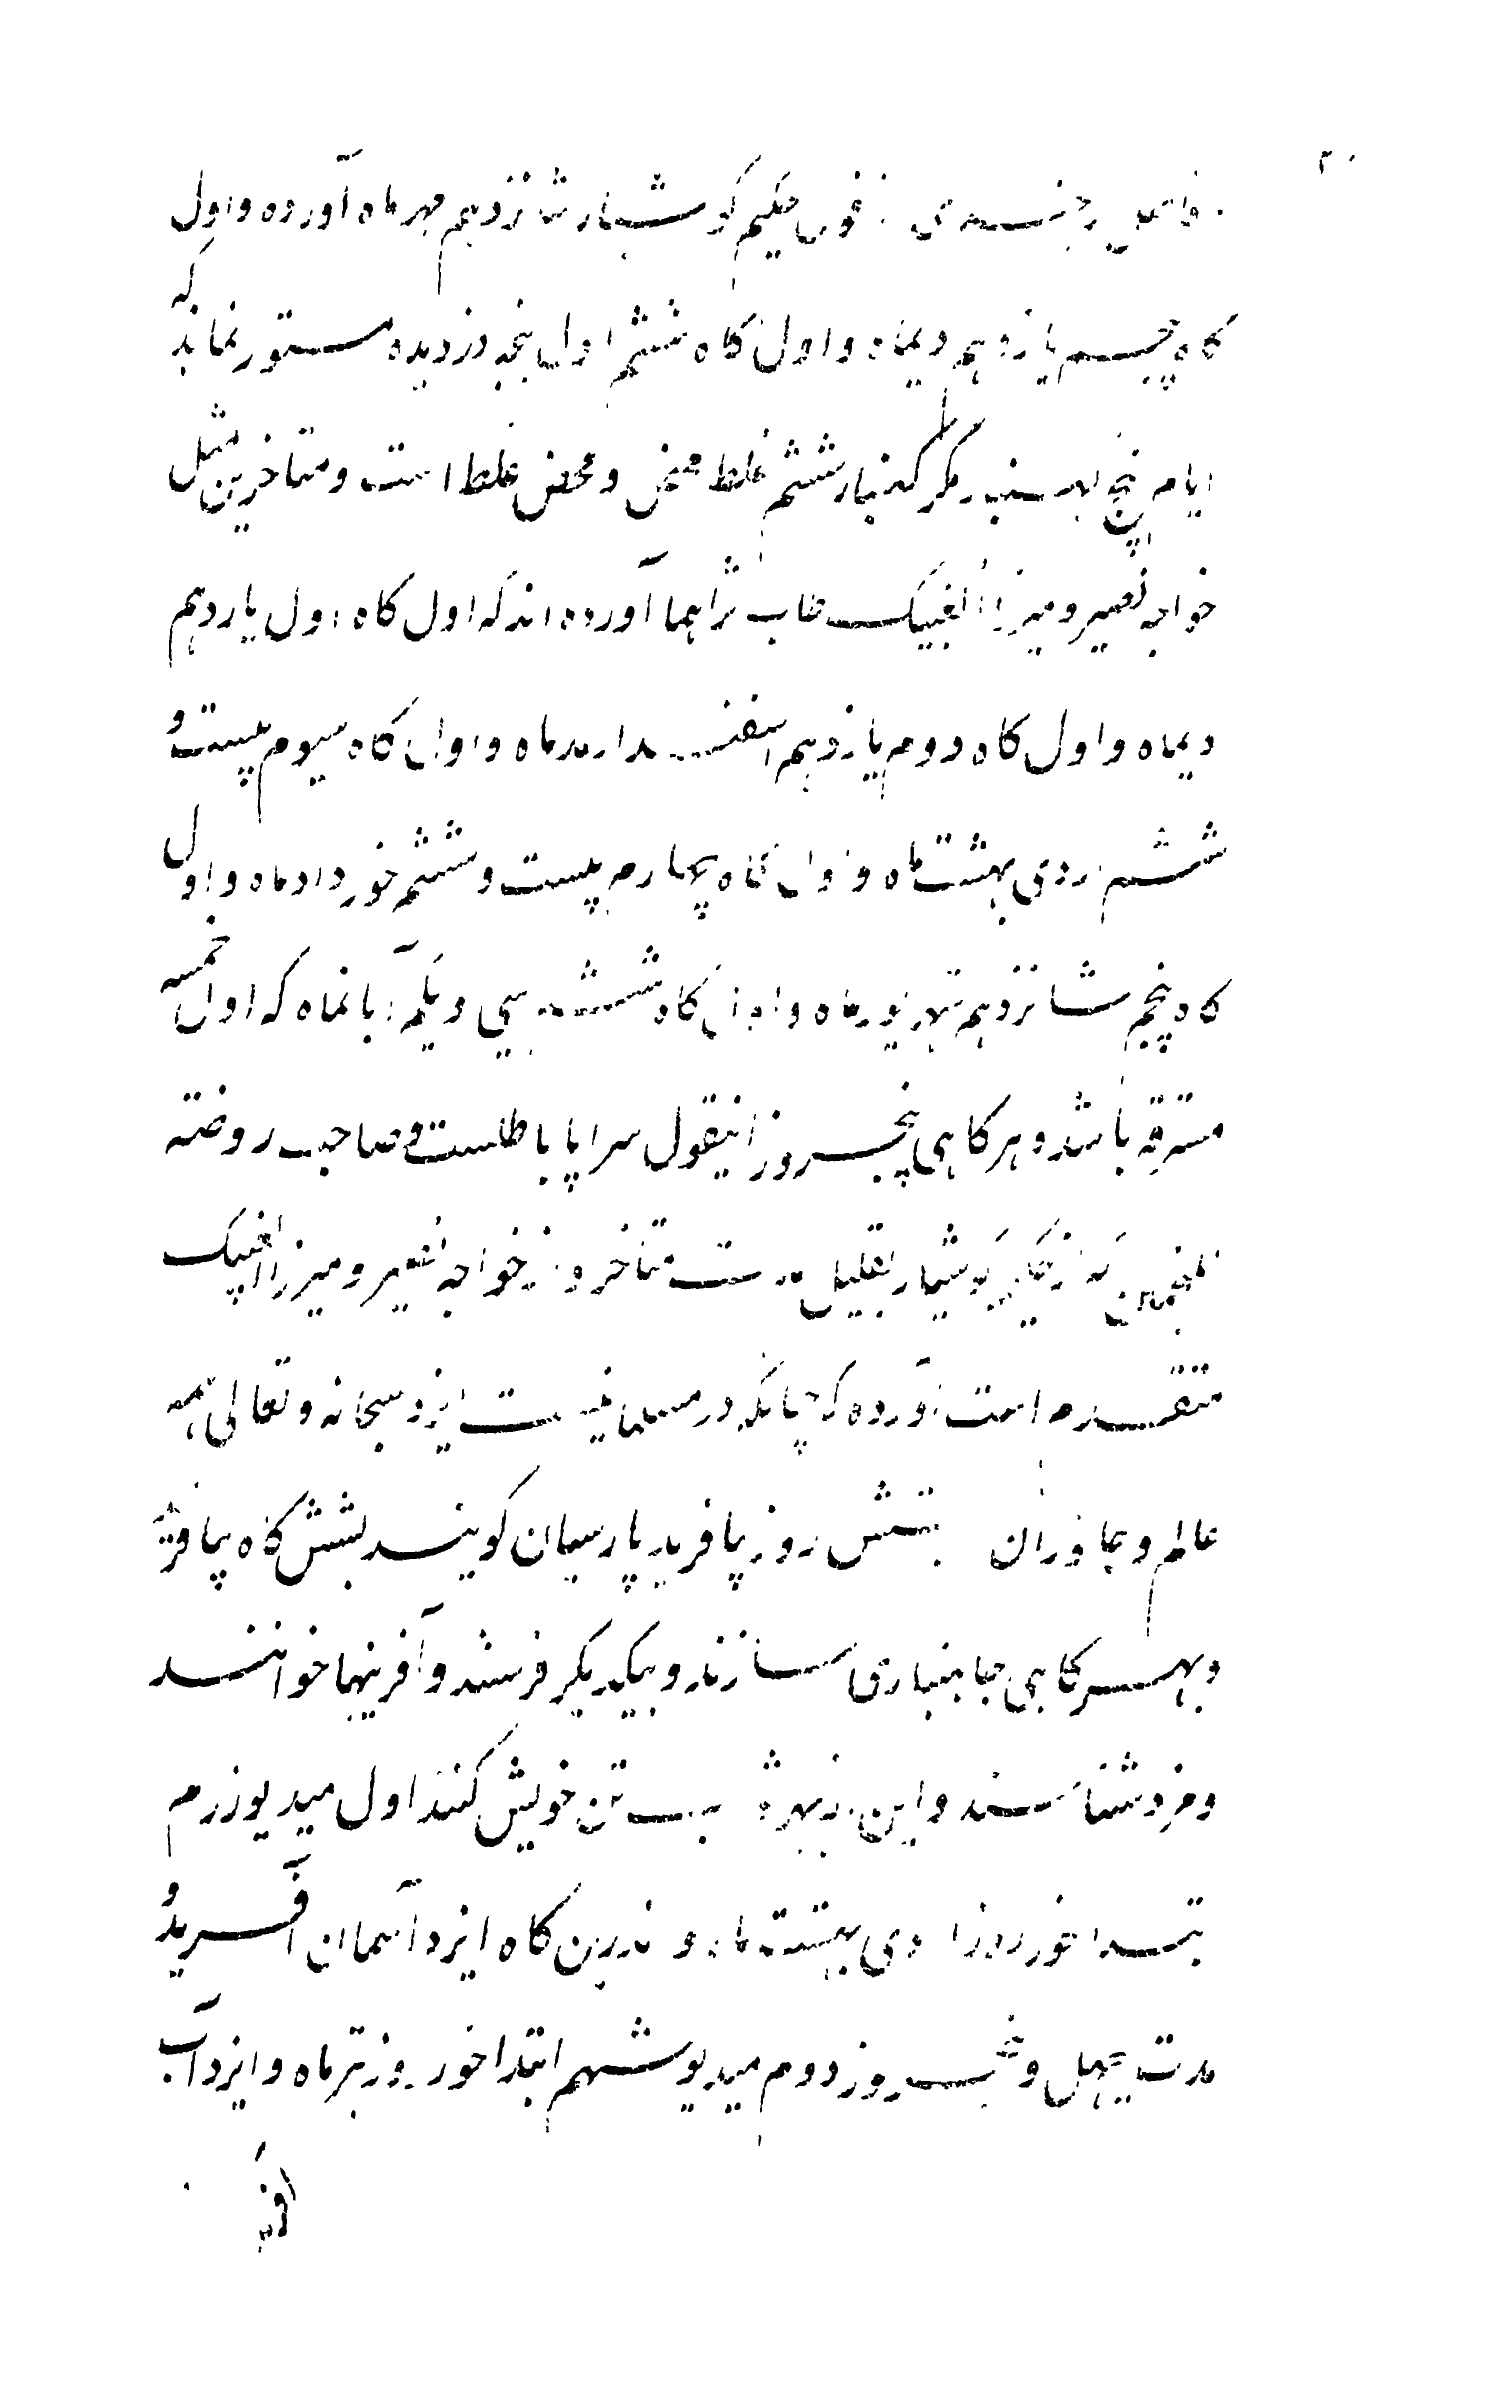 ۲۰
فاضل بیرجندی از قول حکیم کوشیار شانزدهم مهرماه آورده و اول
کاه پنجم یازدهم دیماه و اول کاه ششم اول پنجه دزدیده مستور نماند که
ایام پنج بهر کهنبار مکر کهنبار ششم غلط محض و محض غلط است و متاخرین مثل
خواجه نصیر و میرزا الغبیک طاب ثراهما آورده اند که اول کاه اول یازدهم
دیماه و اول کاه دوم یازدهم اسفندارمدماه و اول کاه سیوم بیست و
ششم اردی بهشت ماه و اول کاه چهارم بیست و ششم خوردادماه و اول
کاه پنجم شانزدهم شهریورماه و اول کاه ششم سی و یکم آبانماه که اول خمسه
مسترقه باشد و هر کاهی پنجروز اینقول سراپا باطلست و صاحب روضة
المنجمین که از حکیم کوشیار بقلیل مدت متاخر و از خواجه نصیر و میرزا الغبیک
متقدم است آورده که چنانکه در مسلمانیست ایزد سبحانه و تعالی همه
عالم و جانوران بشش روز بیافرید پارسیان کویند بشش کاه بیافرید
و بهر کاهی جاهنباری سازند و بیکدیکر فرستند و آفرینها خوانند
و مزد شناسند و این از بهر تن خویش کنند اول میدیوزرم
ابتدا خور روز اردی بهشت ماه و اندرین کاه ایزد آسمان آفرید و
مدت چهل و پنج روز دوم میدیوشهم ابتدا خور روز تیرماه و ایزد آب
آفرید